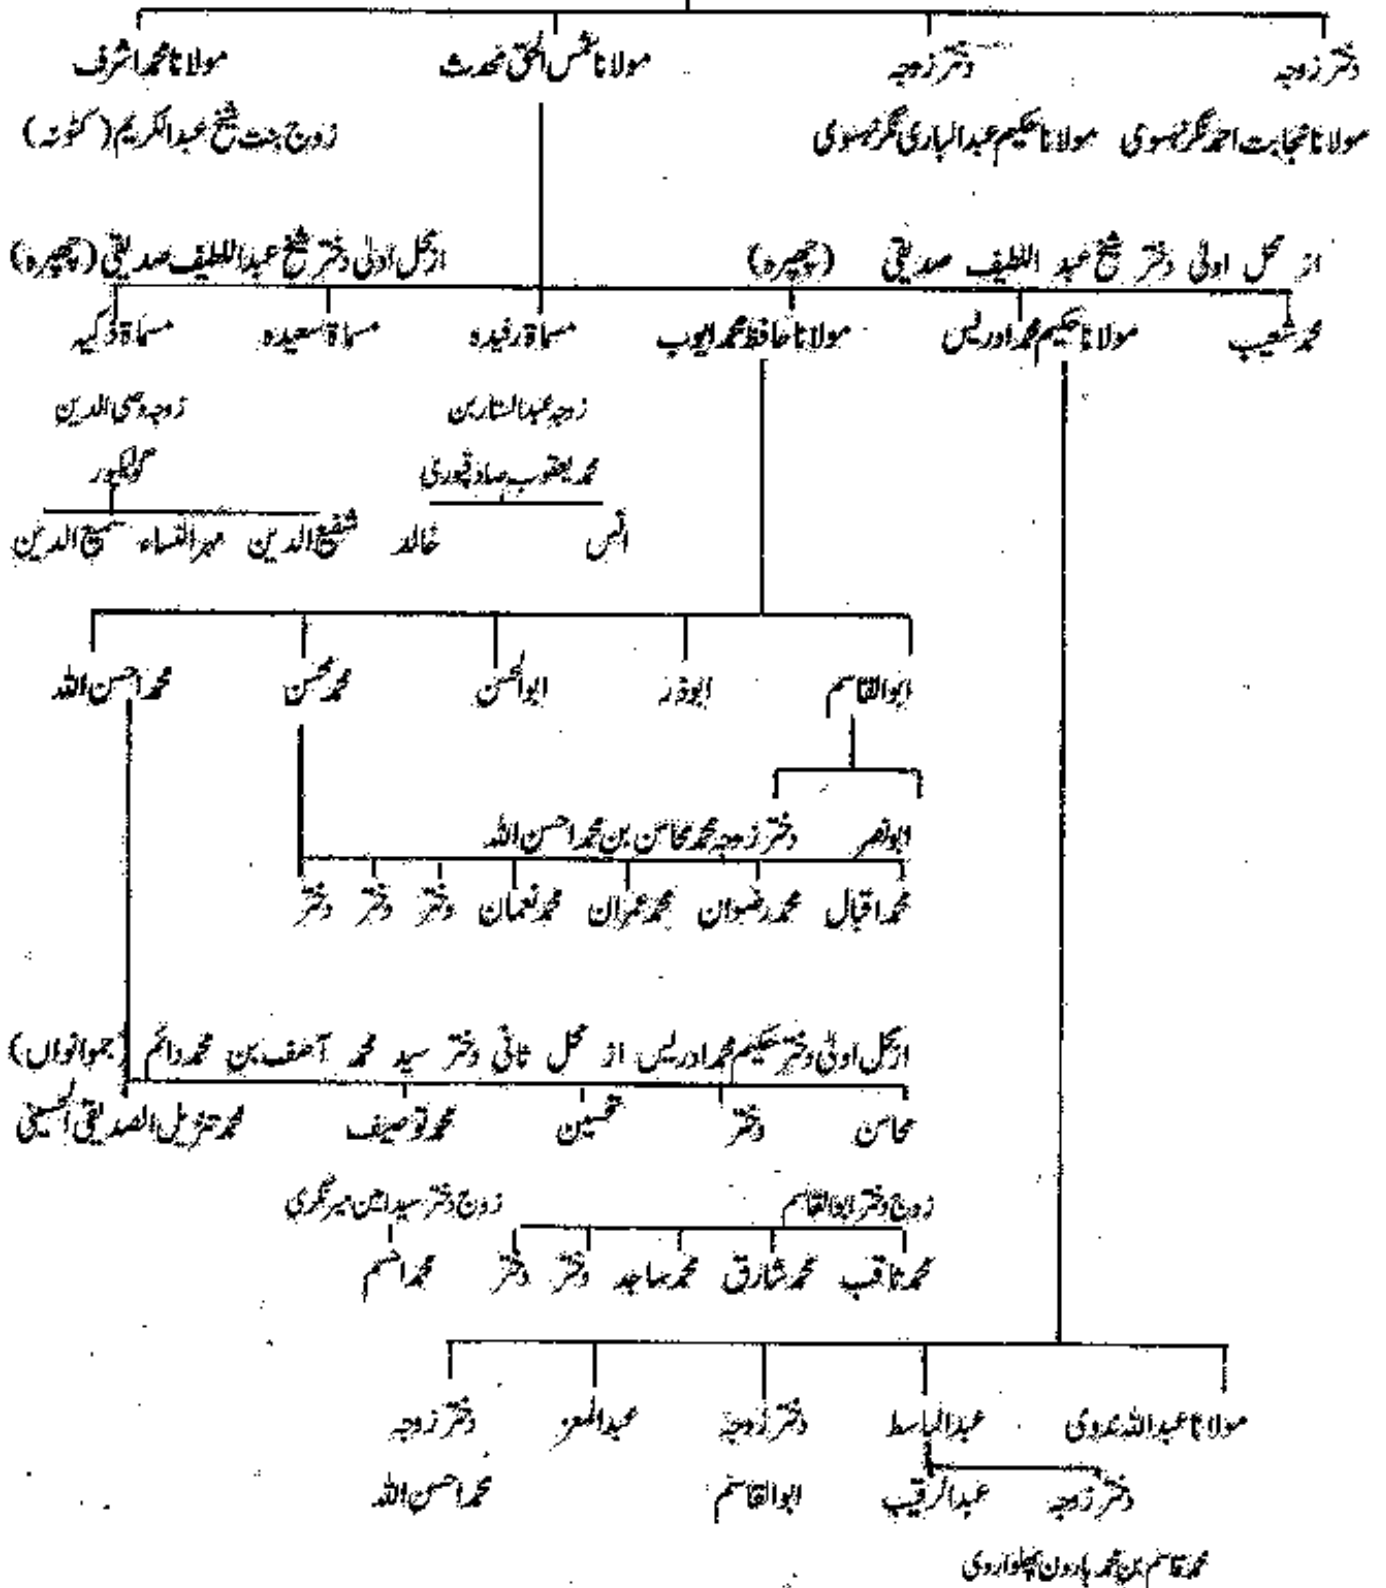 دختر زوجہ دختر زوجہ مولانا شمس الحق محدث مولانا محمد اشرف
مولانا نجابت احمد نگرنہسوی مولانا حکیم عبدالباری نگرنہسوی زوج بنت شیخ عبدالکریم (کٹونہ)
از محل اولیٰ دختر شیخ عبد اللطیف صدیقی (چھپرہ) از محل اولیٰ دختر شیخ عبداللطیف صدیقی (چھپرہ)
محمد شعیب مولانا حکیم محمد ادریس مولانا حافظ محمد ایوب مسماۃ رفیدہ مسماۃ سعیدہ مسماۃ ذکیہ
زوجہ عبدالستار بن زوجہ وصی الدین
محمد یعقوب صادقپوری
انس خالد شفیع الدین مہر النساء سمیع الدین
ابوالقاسم ابوذر ابوالحسن محمد محسن محمد احسن اللہ
ابونصر دختر زوجہ محمد محاسن بن محمد احسن اللہ
محمد اقبال محمد رضوان محمد عمران محمد نعمان دختر دختر دختر
از محل اولیٰ دختر حکیم محمد ادریس از محل ثانی دختر سید محمد آصف بن محمد دائم (جموانواں)
محاسن دختر تحسین محمد توصیف محمد تنزیل الصدیقی الحسینی
زوج دختر ابوالقاسم زوج دختر سید امین میرنگری
محمد ثاقب محمد شارق محمد ساجد دختر دختر
مولانا عبداللہ ندوی عبدالباسط دختر زوجہ عبدالمعز دختر زوجہ
دختر زوجہ عبدالرقیب ابوالقاسم محمد احسن اللہ
محمد قاسم بن محمد ہارون پھلواروی